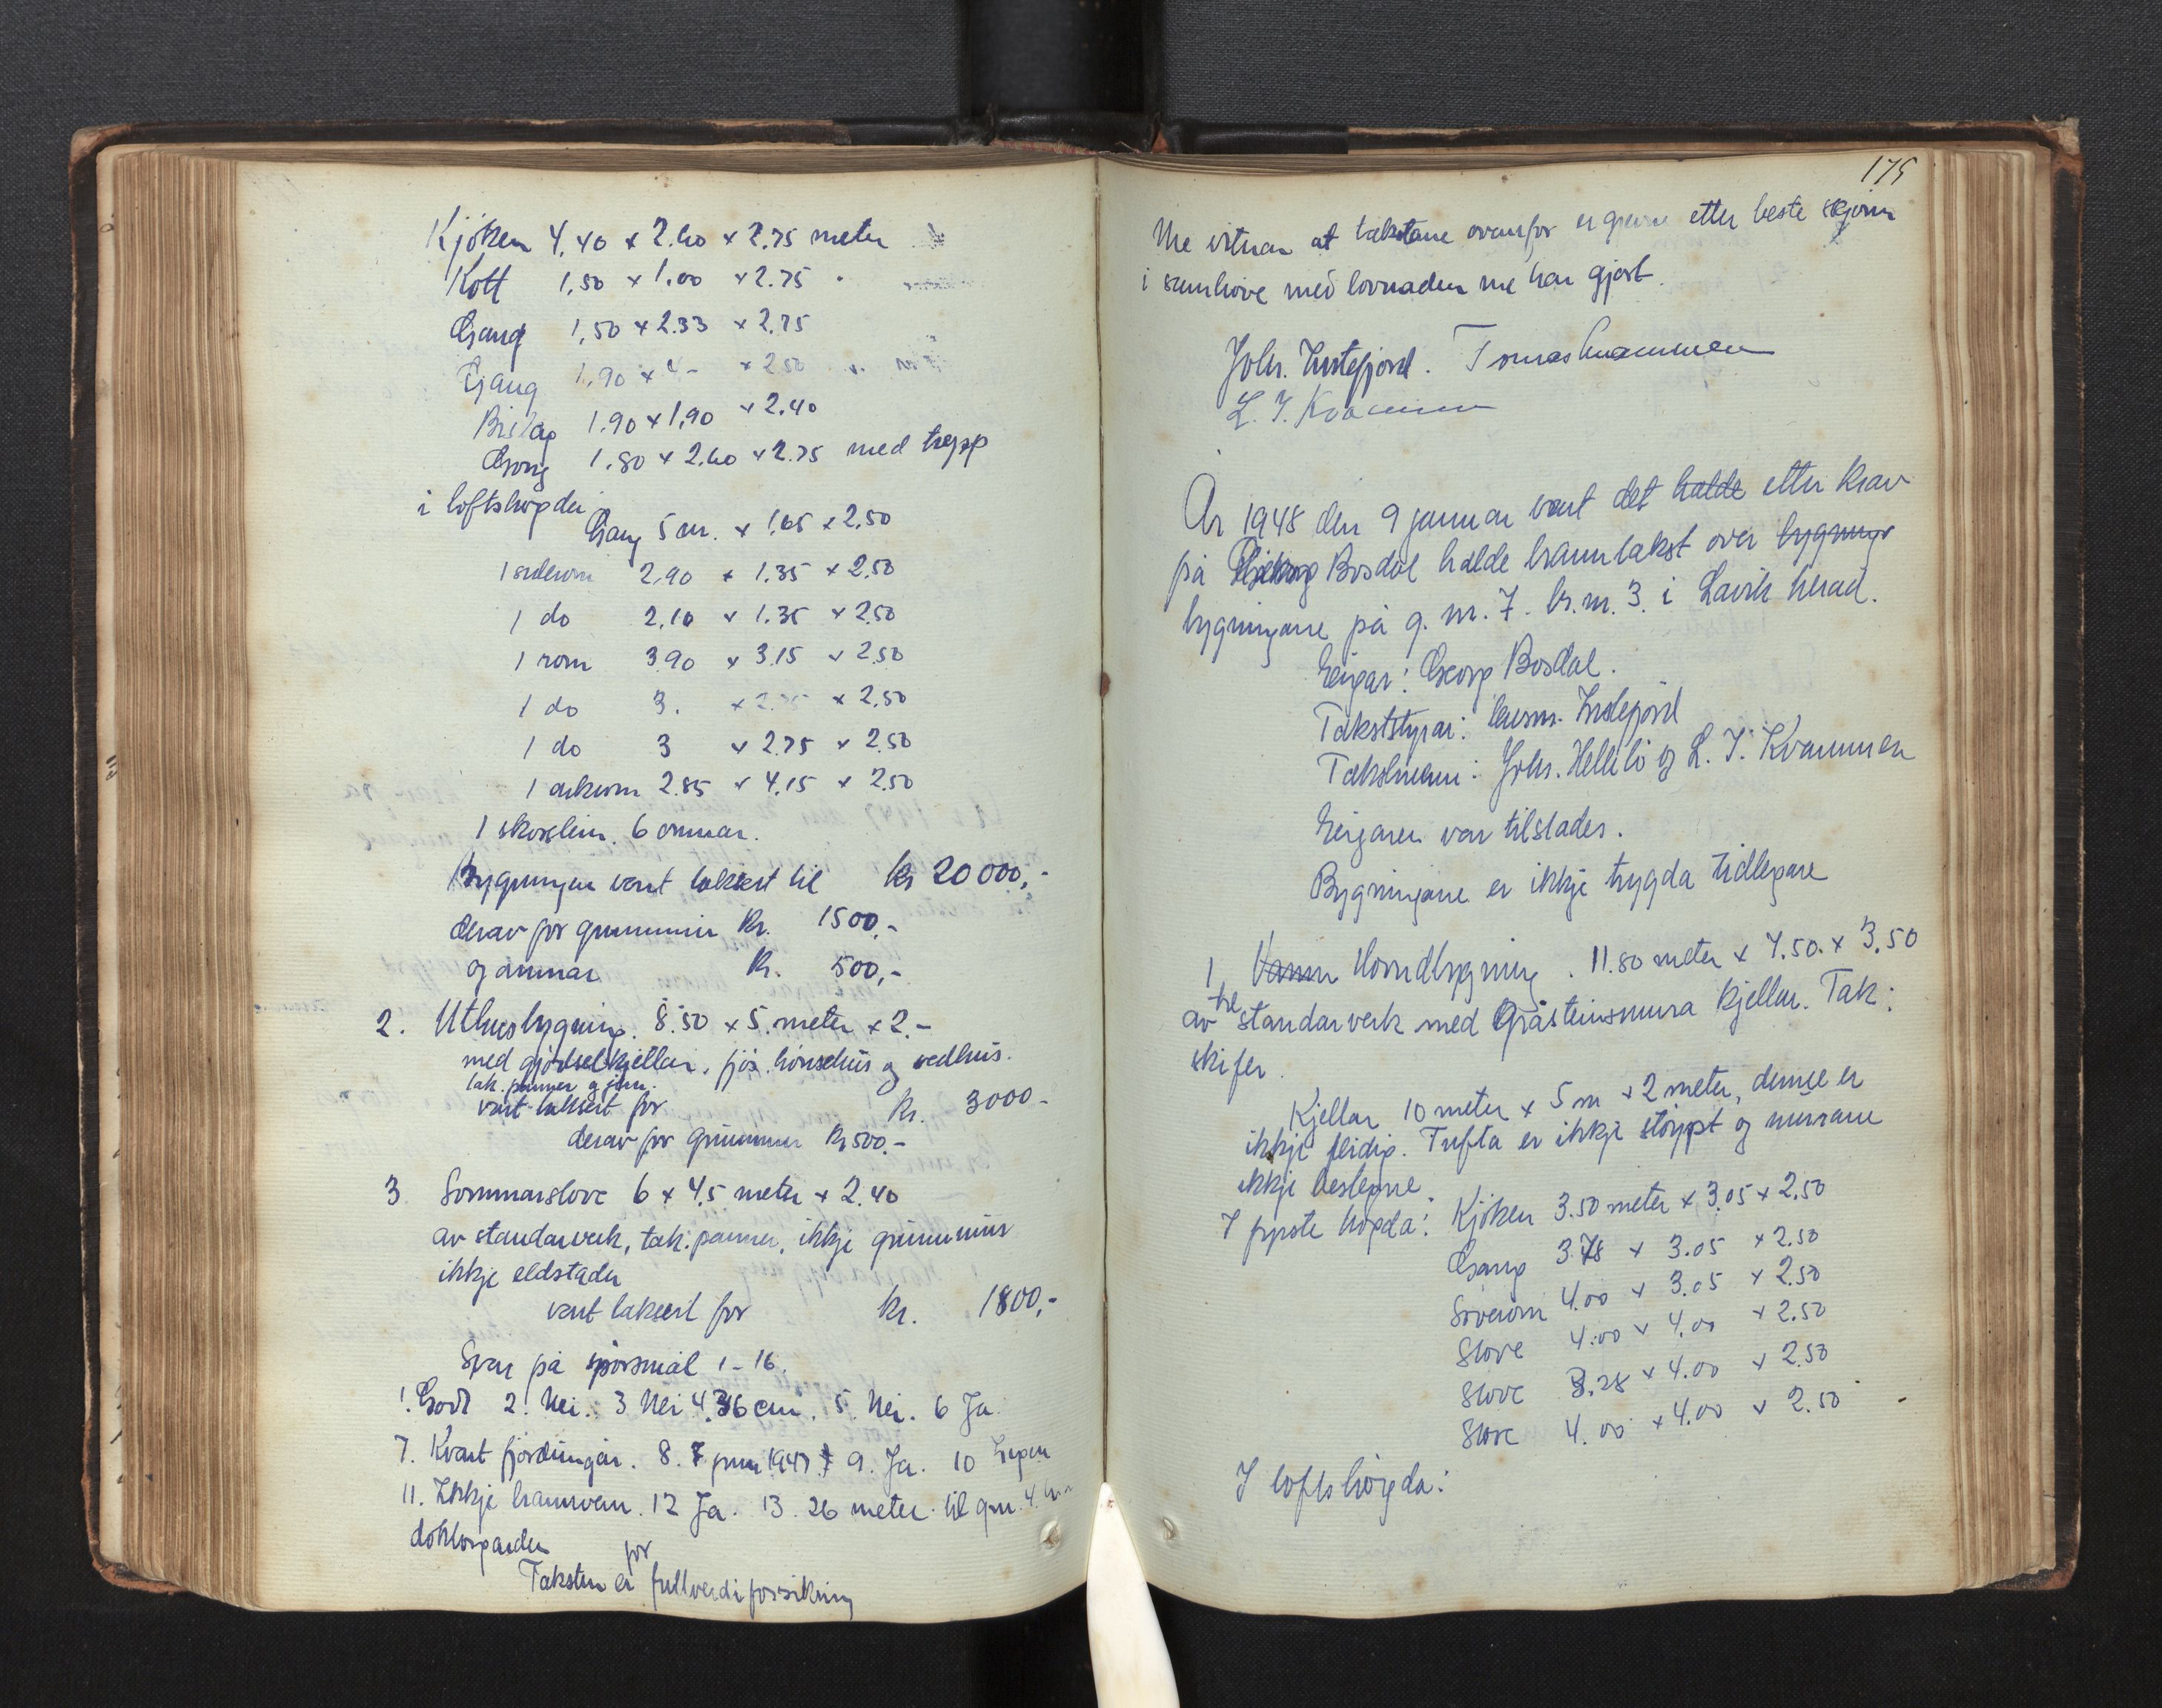 Kjöken 4,40 x 2.60 x 2.75 meter
Kott 1,50 x 1.00 x 2.75
Gang 1,50 x 2.33 x 2,75
Gang 1,90 x 4- x 2.50
Bislag 1.90 x 1,90 x 2.40
Gang 1.80 x 2.60 x 2.75 med trapp
i loftshøgda
Gang 5 m. x 1.65 x 2.50
1 2,90 x 1.35 x 2.50
1 do 2,10 x 1.35 x 2.50
1 rom 3.90 x 3.15 x 2.50
1 do 3. x x 2.50
1 do 3 x 2.75 x 2.50
1 arkrom 2.85 x 4.15 x 2.50
1 skorstein. 6 omnar.
Bygningen vart taksert til kr 20 000,-
derav for grunnmur Kr. 1500,-
og omnar Kr. 500,-
2. Uthusbygning. 8.50 x 5. meter x 2.-
med gjødselkjellar, fjös. hönsehus og vedhus.
tak. panner og jarn.
vart taksert for Kr. 3000-
derav for grunnmur Kr 500.-
3 Sommarstove 6 x 4,5 meter x 2.40
av standarverk, tak. panner, ikkje grunnmur
ikkje eldstader
vart taksert for kr. 1800,-
Svar på spörsmål 1-16.
1. Godt 2. Nei. 3 Nei 4. 36 cm. 5. Nei. 6 Ja
7. Kvart fjordungår. 8. 7 juni 1947 9. Ja. 10 Ingen
11. Ikkje brannvern. 12 Ja. 13. 26 meter til gnr. 4.
doktorgarden
for
Taksten er fullverdiforsikring
175
Me vitnar at takstane ovanfor er gjevne etter beste skjønn
i samhøve med lovnaden me har gjort.
Johs. Instefjord. Tomas Kvammen
L. J. Kvammen
År 1948 den 9 januar vart det halde etter krav
på Georg Bosdal halde branntakst over bygninga
bygningane på g. nr. 7. br. nr. 3. i Lavik herad.
Eigar: Georg Bosdal.
Takststyrar: lensm. Instefjord
Takstmenn: Johs. Hellebö og L. J. Kvammen
Eigaren var tilstades.
Bygningane er ikkje trygda tidlegare
1 Vaan Vonndbygning. 11.80 meter x 7.50. x 3.50
tre
av standarverk med Gråsteinsmura kjellar. Tak:
skifer.
Kjellar 10 meter x 5 m x 2 meter, denne er
ikkje ferdig. Tufta er ikkje støypt og murane
ikkje beslegne.
I fyrste högda: Kjöken 3.50 meter x 3.05 x 2.50
Gang 3.78 x 3.05 x 2.50
Soverom 4.00 x 3.05 x 2.50
Stove 4.00 x 4.00 x 2.50
Stove 3.28 x 4.00 x 2.50
Stove 4.00 x 4.00 x 2.50
I loftshögda: